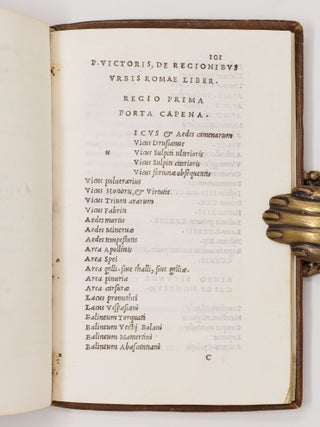 101
P. VICTORIS, DE REGIONIBVS
VRBIS ROMAE LIBER.
REGIO PRIMA
PORTA CAPENA.
ICVS & Aedes camenarum
Vicus Drusianus
Vicus Sulpitij ulterioris
Vicus Sulpitij citerioris
Vicus fortunæ obsequentis
Vicus puluerarius
Vicus Honoris, & Virtutis
Vicus Trium ararum
Vicus Fabricij
Aedes martis
Aedes Mineruæ
Aedes tempestatis
Area Apollinis
Area Spei
Area galli, siue thalli, siue galliæ.
Area pinaria
Area carsuræ
Lacus promethei
Lacus Vespasiani
Balineum Torquati
Balineum Vectij Bolani
Balineum Mamertini
Balineum Abascantiani
C